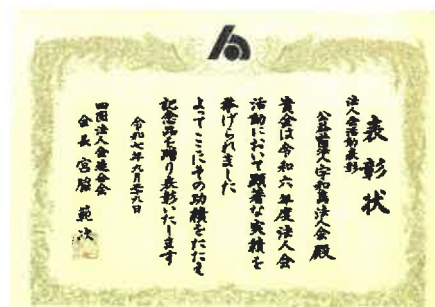 表彰状
法人会活動表彰
公益社団法人宇和島法人会殿
貴会は令和六年度法人会
活動において顕著な実績を
挙げられました
よってここにその功績をたたえ
記念品を贈り表彰いたします
令和七年九月二十九日
四国法人会連合会
会長 宮脇 範次